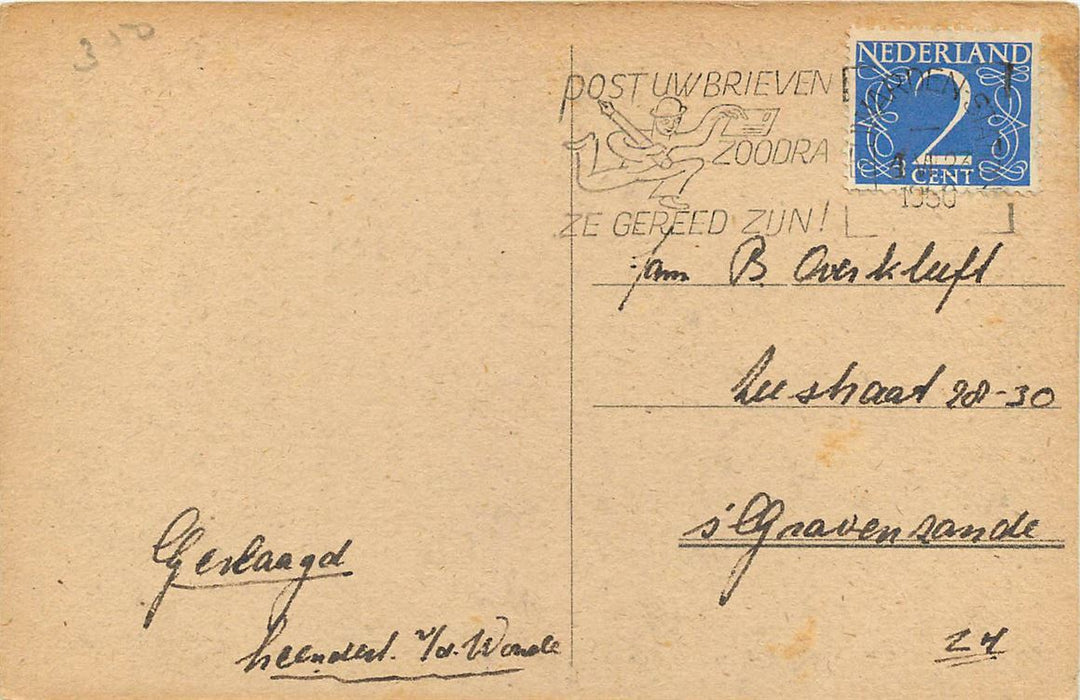 350
NEDERLAND
2
CENT
POST UW BRIEVEN
ZOODRA
ZE GEREED ZIJN!
1950
Fam B. Overkleeft
Zeestraat 28-30
s'Gravenzande
ZH
Geslaagd
Leendert. v/d. Woude